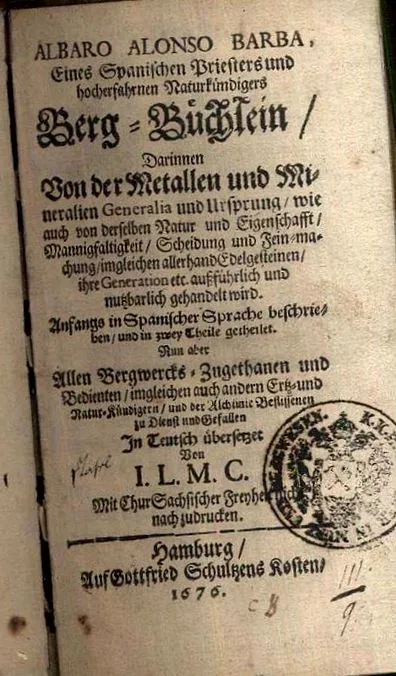 ALBARO ALONSO BARBA,
Eines Spanischen Priesters und
hocherfahrnen Naturkündigers
Berg-Büchlein/
Darinnen
Von der Metallen und Mi-
neralien Generalia und Ursprung/ wie
auch von derselben Natur und Eigenschafft/
Mannigfaltigkeit/ Scheidung und Fein-ma-
chung/ imgleichen allerhand Edelgesteinen/
ihre Generation etc. außführlich und
nutzbarlich gehandelt wird.
Anfangs in Spanischer Sprache beschrie-
ben/ und in zwey Theile getheilet.
Nun aber
Allen Bergwercks-Zugethanen und
Bedienten/ imgleichen auch andern Ertz- und
Natur-Kündigern/ und der Alchimie Beflissenen
zu Dienst und Gefallen
In Teutsch übersetzet
Von
I. L. M. C.
Mit Chur Sächsischer Freyheit nicht
nachzudrucken.
Hamburg/
Auf Gottfried Schultzens Kosten/
1676.
III
9.